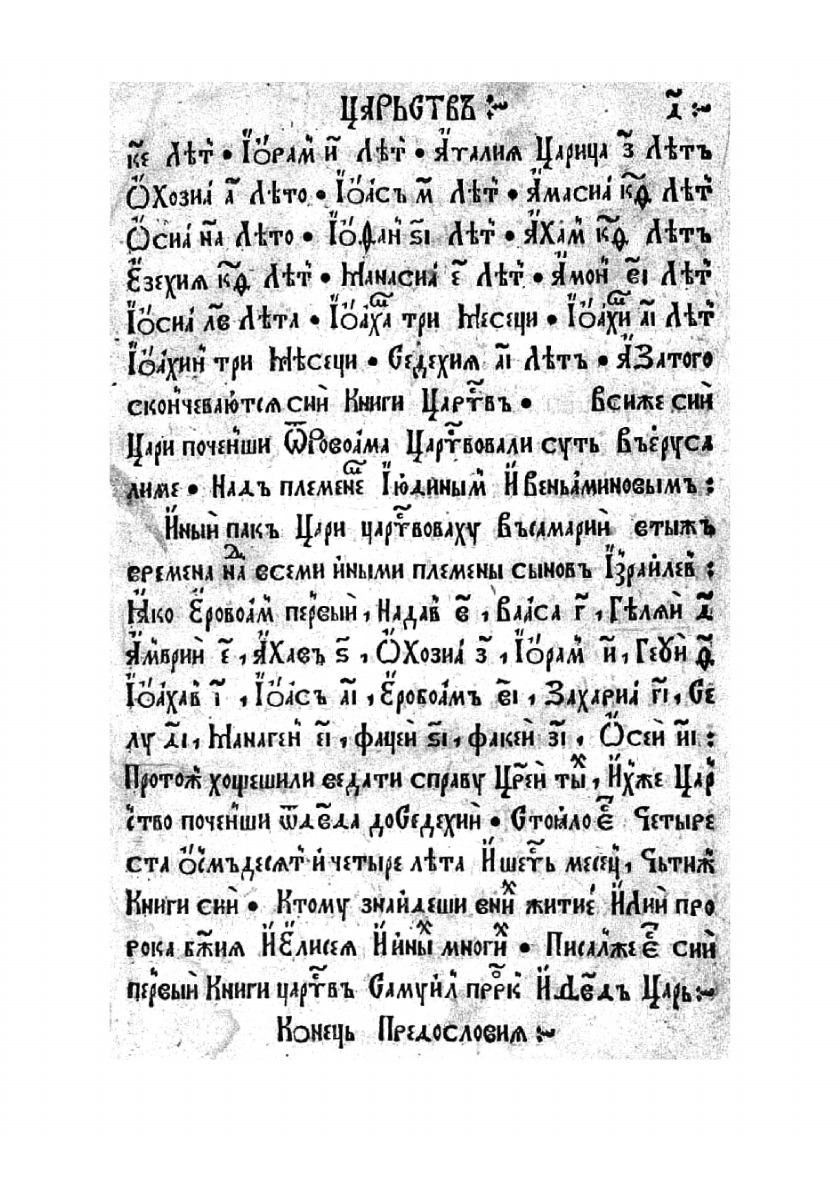 ЦАРЬСТВЪ :~ д҃ :~
к҃е Лѣт̾ • Іѻ҆рам̾ и҃ Лѣт̾ • А҆талиꙗ Царица з҃ Лѣтъ
Ѻ҆хозиа̀ а҃ Лѣто • Іѻ҆асъ м҃ Лѣт̾ • А҆масиа̀ к҃ѳ Лѣт̾
Ѻ҆сиа̀ н҃а Лѣто • Іѻ҆фан̾ ѕ҃і Лѣт̾ • А҆хам̾ к҃ѳ Лѣтъ
Е҆зехиꙗ к҃ѳ Лѣт̾ • Манасиа̀ е҃ Лѣт̾ • А҆мон̾ в҃і Лѣт̾
Іѻ҆сиа̀ л҃в Лѣта • Іѻ҆ахаⷭ҇ три Месеци • Іѻ҆ахиⷨ а҃і Лѣт̾
Іѻ҆ахин̾ три Мѣсеци • Седехиꙗ а҃і Лѣтъ • А҆затого
скон̾чеваютсѧ сии̾ Книги Царⷭ҇твъ • всиже сии̾
Цари почен̾ши ѿровоа́ма Царⷭ҇твовали суть въе҆руса
лиме • Надъ племенеⷨ Ію҆диным̾ И҆веньа́миновымъ :
И҆ный пакъ Цари царⷭ҇твоваху въсамарии̾ втыжъ
времена наⷣ всеми и҆ными племены сыновъ І҆зраилев̾ :
Ꙗ҆ко Е҆ровоам̾ первый , Надав̾ в҃ , Вааса г҃ , Гѣлѧй д҃
А҆мврий е҃ , А҆хавъ ѕ҃ , Ѻ҆хозиа̀ з҃ , Іѻ҆рам̾ и҃ , Геꙋй ѳ҃
Іѻ҆ахав̾ і҃ , Іѻ҆асъ а҃і , Е҆ровоамъ в҃і , Захариа̀ г҃і , Се
лу д҃і , Манаген̾ е҃і , фацей ѕ҃і , факей з҃і , Ѻ҆сей и҃і :
Протож̾ хощешили ведати справу Цр҃ей тыⷯ , И҆хже Цар̾
ство почен̾ши ѿдв҃да доСедехии̾ • Стоило еⷭ҇ Четыре
ста ѻ҆смъдесѧт̾ и҆ четыре лѣта И҆ шеть месец̾ , Чьтиж̾
Книги сии̾ • Ктому знайдеши вниⷯ житие̾ И҆лии̾ про
рока бж҃иꙗ И҆Е҆лисеꙗ И҆ и҆ныⷯ многиⷯ • Писалжееⷭ҇ сии̾
первый Книги царⷭ҇твъ Самуил̾ прⷪ҇рк̾ И҆дв҃дъ Царь :~
Конець Предословиꙗ :~